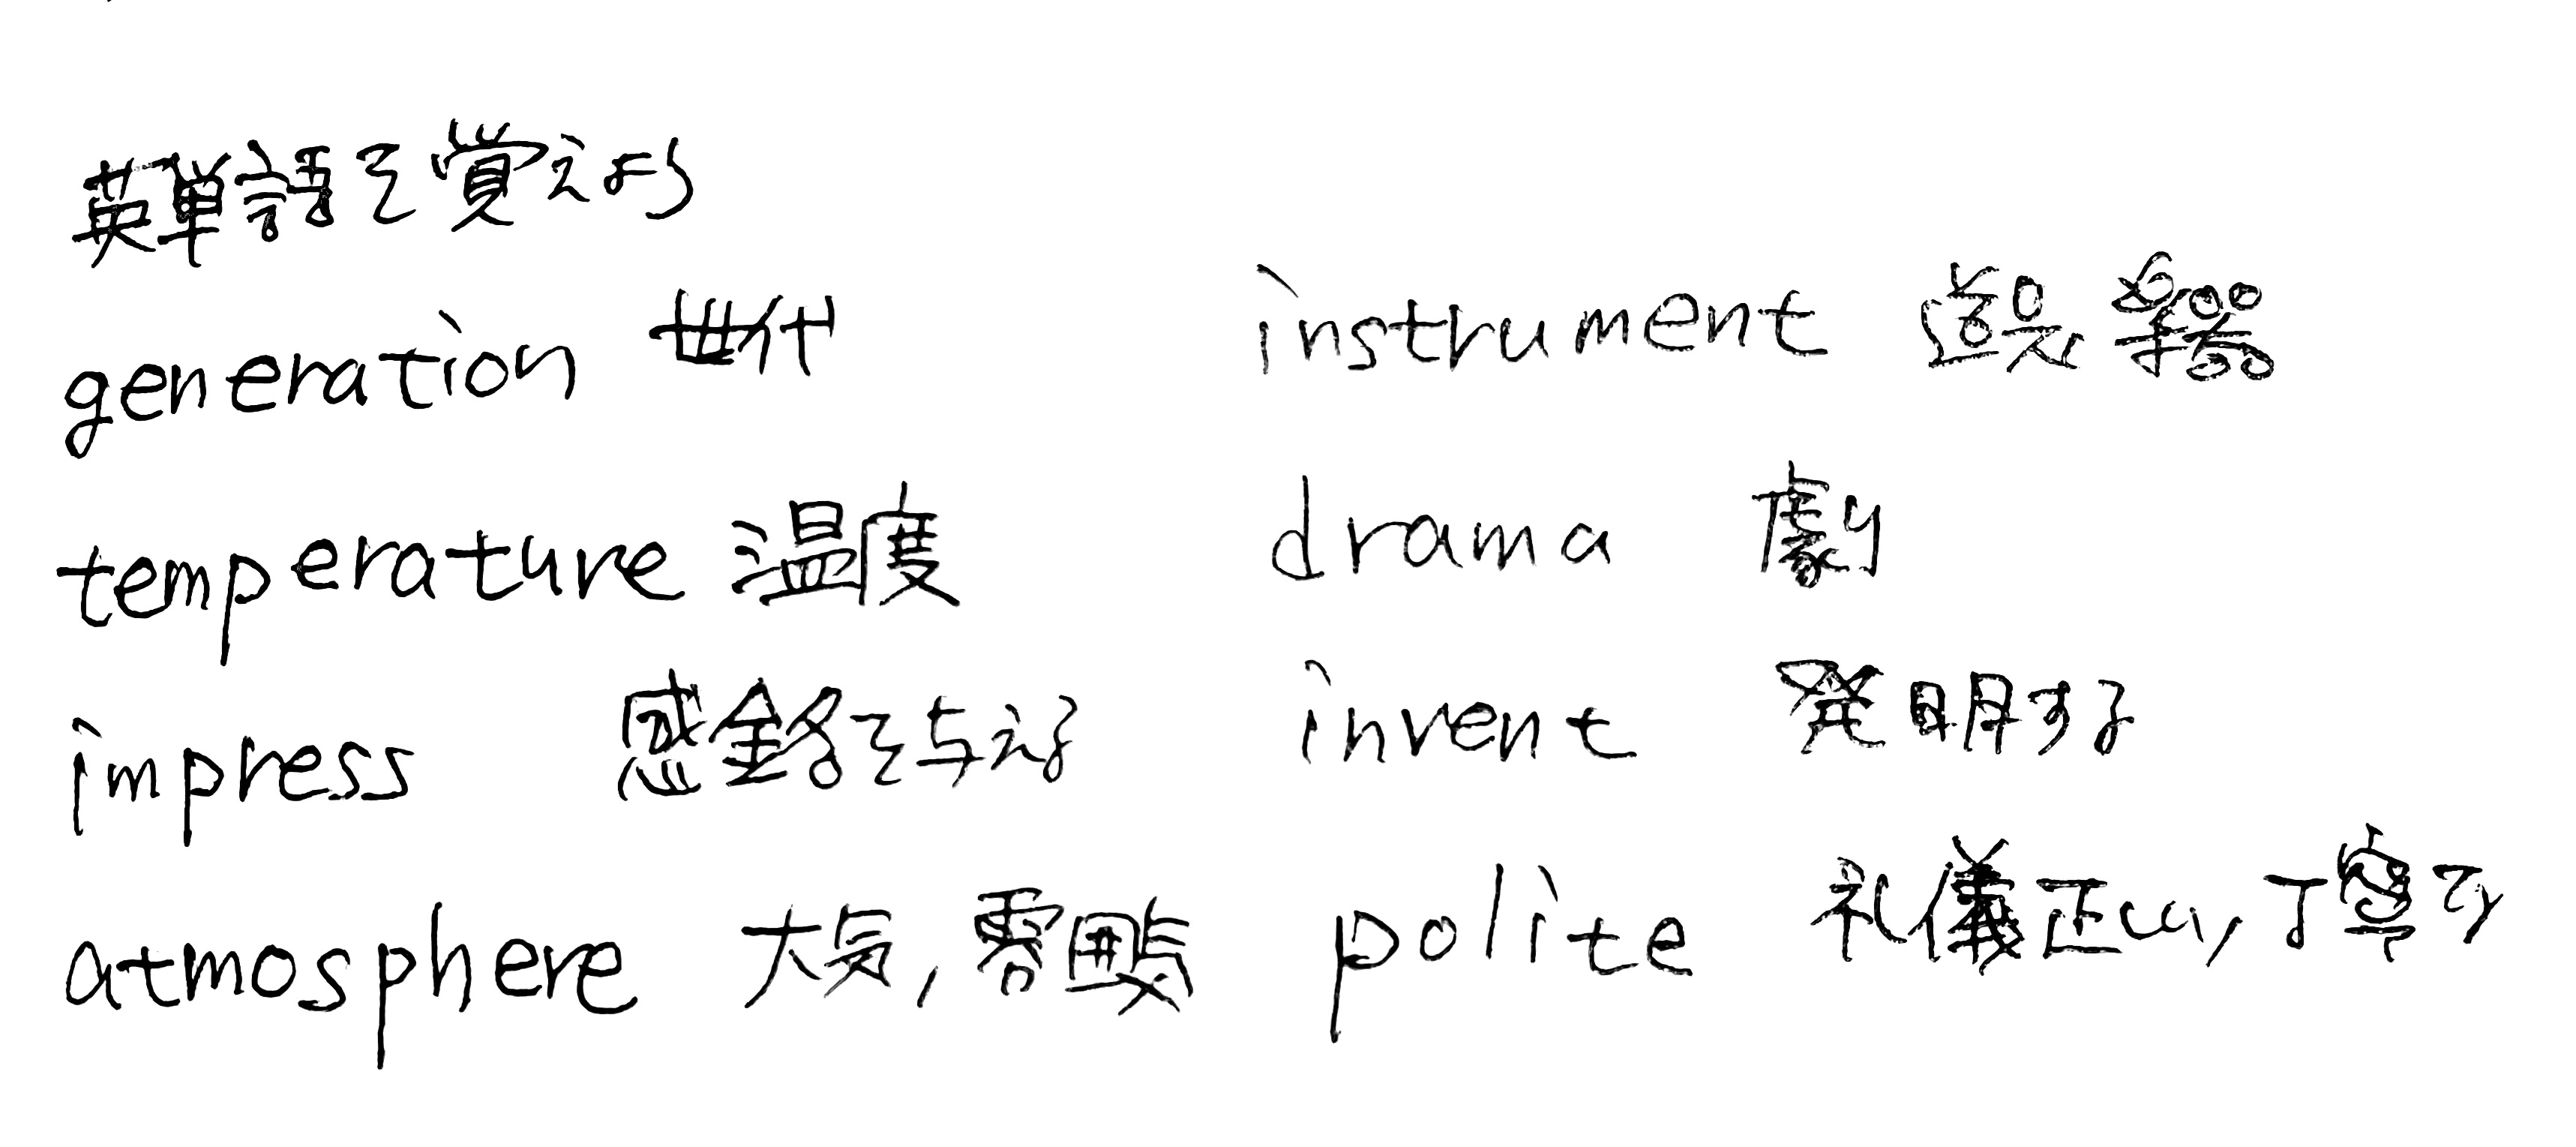 英単語を覚えよう
generation 世代
temperature 温度
impress 感銘を与える
atmosphere 大気,雰囲気
instrument 道具,楽器
drama 劇
invent 発明する
polite 礼儀正しい,丁寧な